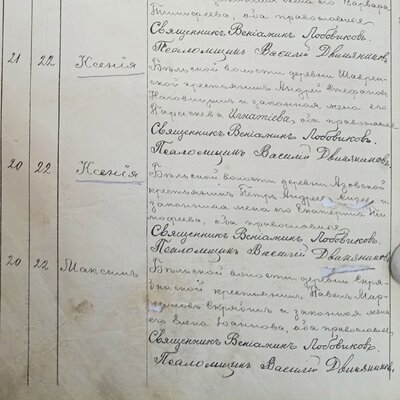 Никифорова, оба православные
Священникъ Веніаминъ Лобовиковъ.
Псаломщикъ Василій Двиняниновъ.
21 22 Ксенія
Бѣльской волости деревни
крестьянинъ Андрей
и законная жена его
Параскева Игнатіева, оба православные
Священникъ Веніаминъ Лобовиковъ.
Псаломщикъ Василій Двиняниновъ.
20 22 Ксенія
Бѣльской волости деревни Азовской
крестьянинъ Петръ Андреевъ и
законная жена его Екатерина Ти-
моѳеева, оба православные
Священникъ Веніаминъ Лобовиковъ.
Псаломщикъ Василій Двиняниновъ.
20 22 Максимъ
Бѣльской волости деревни
крестьянинъ Павелъ Мар-
и законная жена
его Елена Іоаннова, оба православные
Священникъ Веніаминъ Лобовиковъ
Псаломщикъ Василій Двиняниновъ.